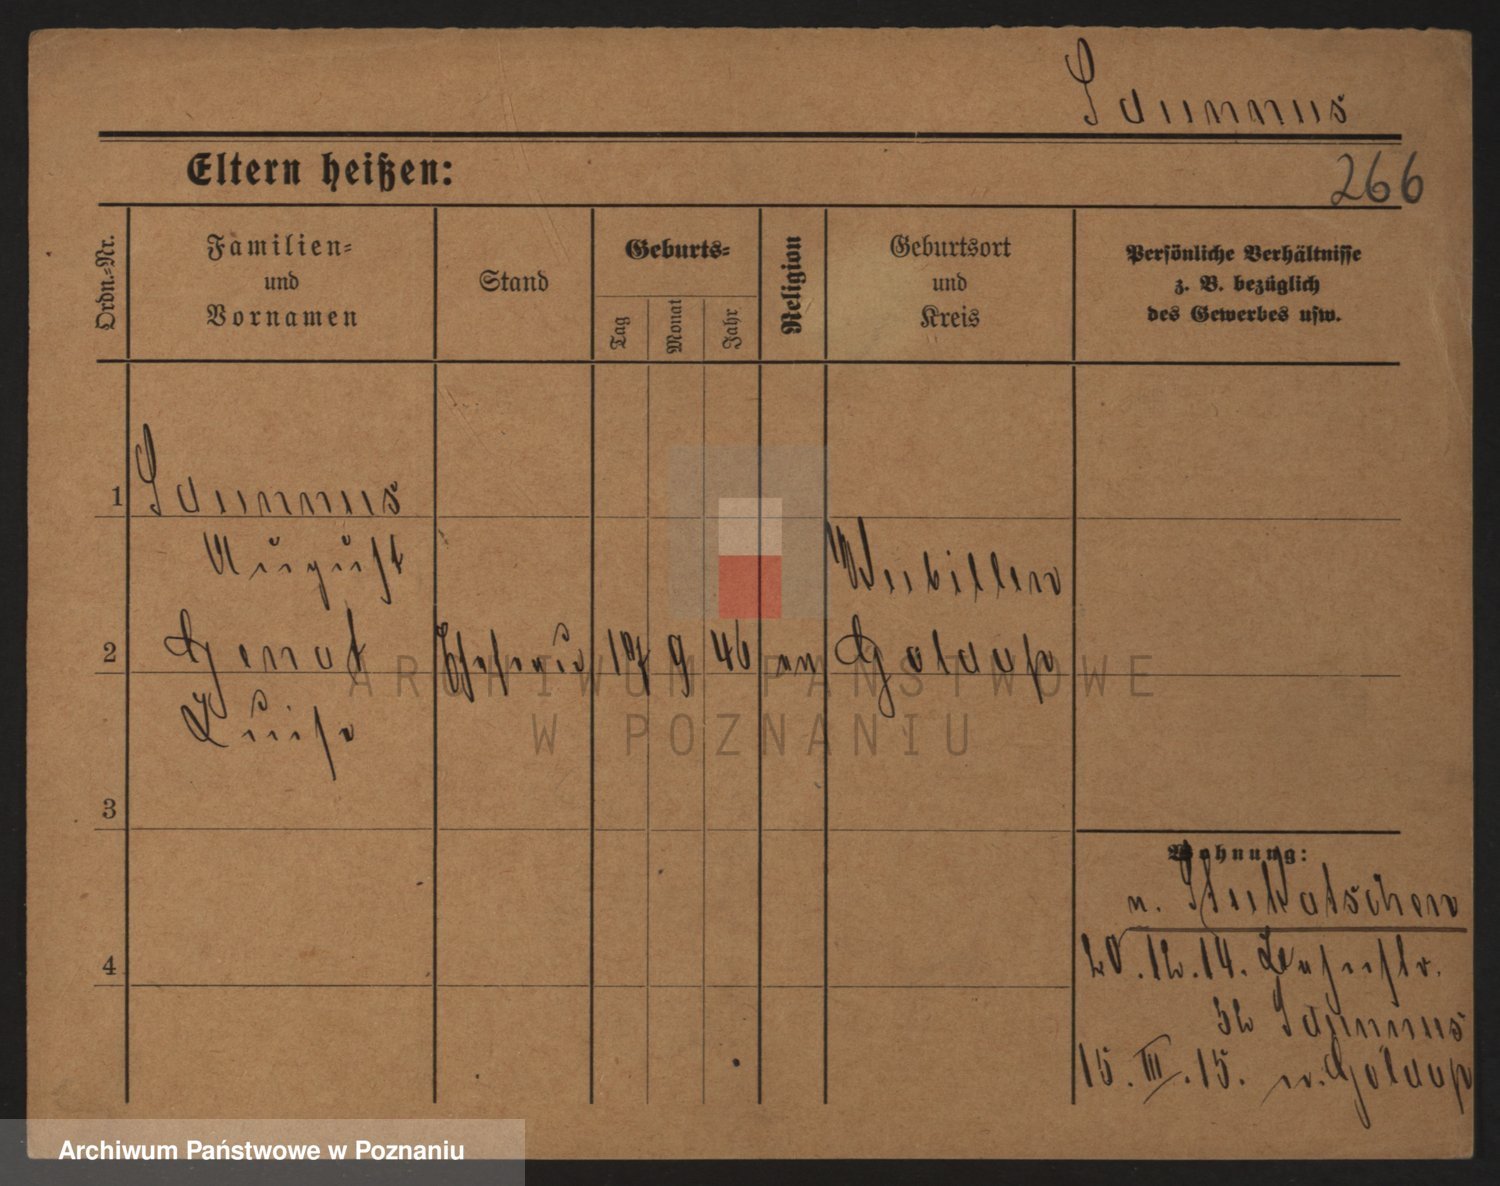 Saunnus
Eltern heißen:
266
Ordn.-Nr.
Familien-
und
Vornamen
Stand
Geburts-
Tag
Monat
Jahr
Religion
Geburtsort
und
Kreis
Persönliche Verhältnisse
z. B. bezüglich
des Gewerbes usw.
1
Saunnus
August
2
Ehefrau
17
9
46
ev
Goldap
Luise
3
4
Wohnung:
n.
20.12.14.
32 Saunnus
15.III.15. n. Goldap
ARCHIWUM PAŃSTWOWE
W POZNANIU
Archiwum Państwowe w Poznaniu